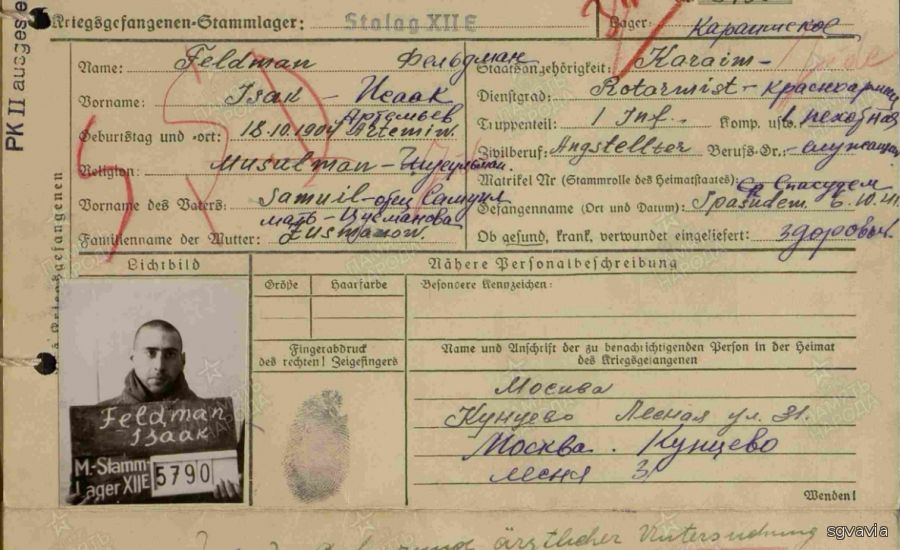 PK II ausges
Kriegsgefangenen-Stammlager: Stalag XII E
Lager: Караимское
Name: Feldman Фельдман
Staatsangehörigkeit: Karaim-
Vorname: Isak - Исаак
Dienstgrad: Rotarmist - красноармеец
Артемьев
Geburtstag und -ort: 18.10.1904 Artemiw.
Truppenteil: 1 Inf. Komp. usw. 1 пехотная
Religion: Musulman -
Zivilberuf: Angstellter Berufs-Gr.: - служащий
Matrikel Nr (Stammrolle des Heimatstaates):
Vorname des Vaters: Samuil - отец Самуил
Gefangenname (Ort und Datum): Spasudem. 6.10.41
мать - Цусманова
Familienname der Mutter: Zusmanow.
Ob gesund, krank, verwundet eingeliefert: здоровый.
des Kriegsgefangenen
Lichtbild
Nähere Personalbeschreibung
Größe Haarfarbe Besondere Kennzeichen:
Fingerabdruck
des rechten! Zeigefingers
Name und Anschrift der zu benachrichtigenden Person in der Heimat
des Kriegsgefangenen
Москва
Кунцево Лесная ул. 31.
Москва. Кунцево
Feldman
Isaak
M-Stamm-
Lager XII E 5790
Wenden!
ärztlicher Untersuchung
sgvavia